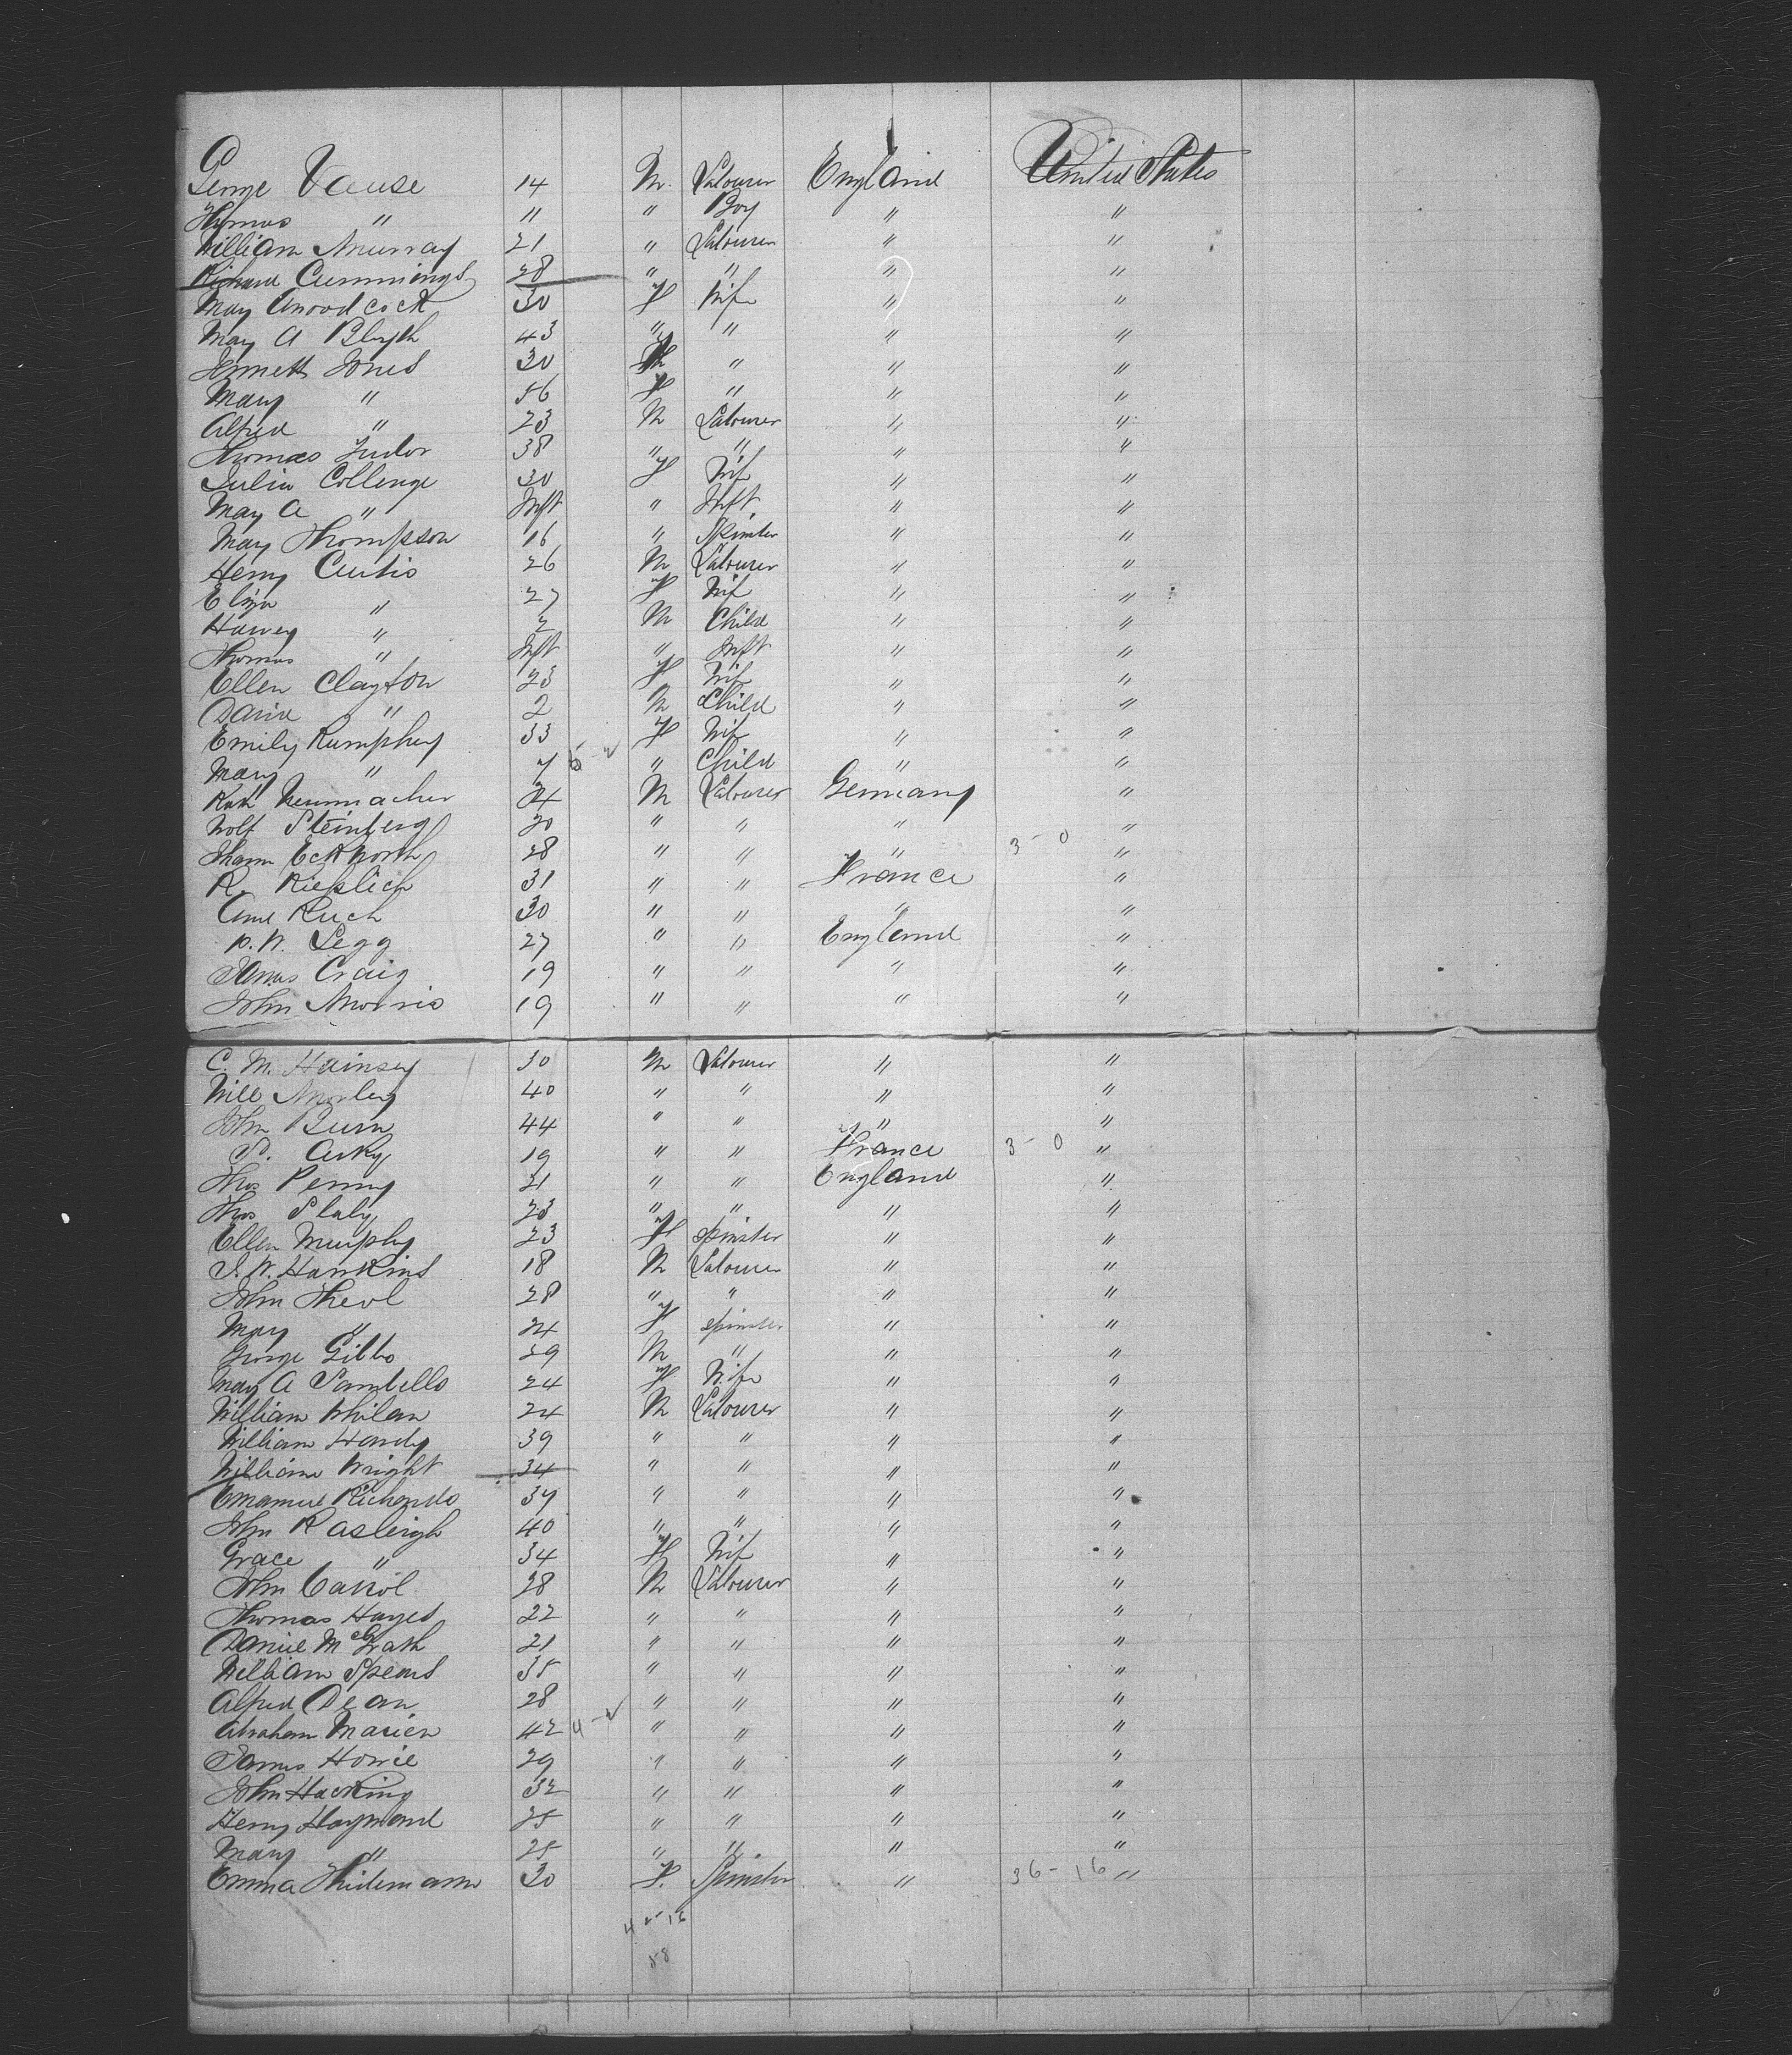 George Vause 14 M. Labourer England United States
Thomas " 11 " Boy " "
William Murray 21 " Labourer " "
Richard Cummings 28 " " " "
Mary Woodcock 30 F Wife " "
Mary A Blyth 43 " " " "
Jennett Jones 30 " " "
Mary " 56 F " " "
Alfred " 23 M Labourer " "
Thomas Tudor 38 " " " "
Julia Collenge 30 F Wife " "
Mary A " Inft " Inft " "
Mary Thompson 16 " Spinster " "
Henry Curtis 26 M Labourer " "
Eliza " 27 F Wife " "
Harvey " 2 M Child " "
Thomas " Inft " Inft " "
Ellen Clayton 23 F Wife " "
David " 2 M Child " "
Emily Rumphey 33 F Wife " "
Mary " 7 " Child " "
Neumacher 24 M Labourer Germany "
Wolf Steinberg 20 " " " "
Eckworth 28 " " " 3-0 "
R. 31 " " France "
Ruch 30 " " " "
W. Legg 27 " " England "
James Craig 19 " " " "
John Morris 19 " " " "
C. M. Hainsey 30 M Labourer " "
Will Morley 40 " " " "
John Burn 44 " " " "
19 " " France 3-0 "
Thos Penny 21 " " England "
Thos 23 " " " "
Ellen Murphy 23 F Spinster " "
J. W. Hawkins 18 M Labourer " "
John 28 " " " "
Mary " 24 F Spinster " "
George Gibbs 29 M " " "
Mary A Sambells 24 F Wife " "
William Whilan 24 M Labourer " "
William Handy 39 " " " "
William Wright 34 " " " "
Emanuel Richards 37 " " " "
John Rasleigh 40 " " " "
Grace " 34 F Wife " "
John Carrol 28 M Labourer " "
Thomas Hayes 22 " " " "
Daniel McGrath 21 " " " "
William Spears 35 " " " "
Alfred Dean 28 " " " "
Abraham Marien 42 " " " "
James Howie 29 " " " "
John Hacking 32 " " " "
Henry Haymond 25 " " " "
Mary " 25 " " " "
Emma 30 F. Spinster " 36-16 "
58